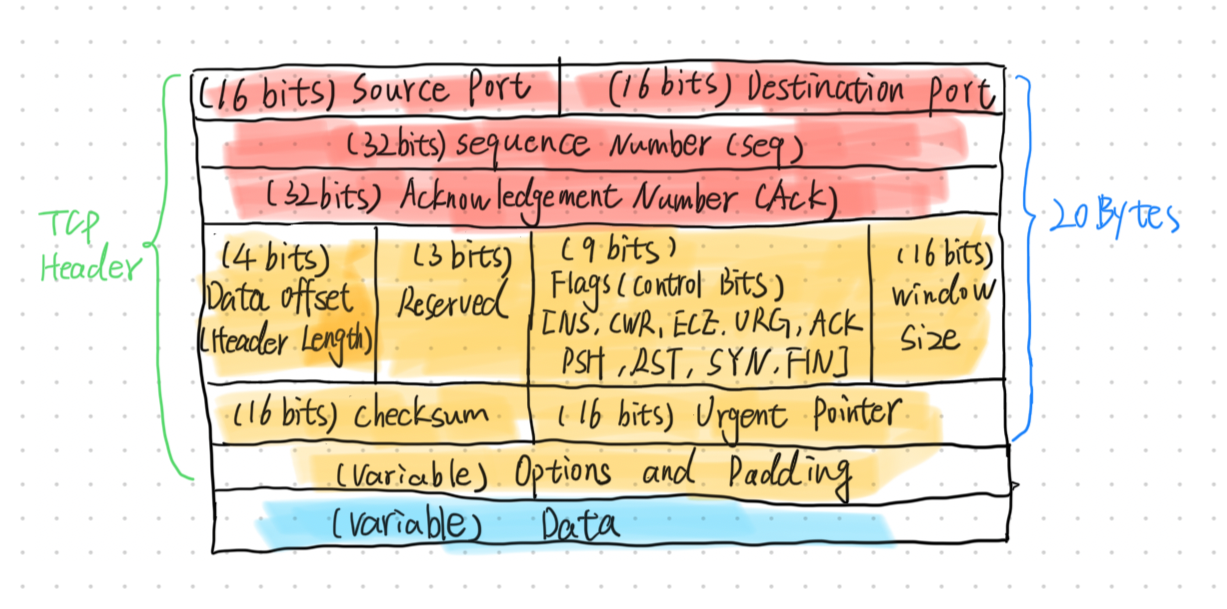 (16 bits) Source Port
(16 bits) Destination Port
(32bits) sequence Number (seq)
(32bits) Acknowledgement Number (Ack)
TCP
Header
20 Bytes
(4 bits)
Data offset
(Header Length)
(3 bits)
Reserved
(9 bits)
Flags (Control Bits)
[NS, CWR, ECE, URG, ACK
PSH, RST, SYN, FIN]
(16 bits)
window
size
(16 bits) checksum
(16 bits) Urgent Pointer
(Variable) Options and Padding
(variable) Data